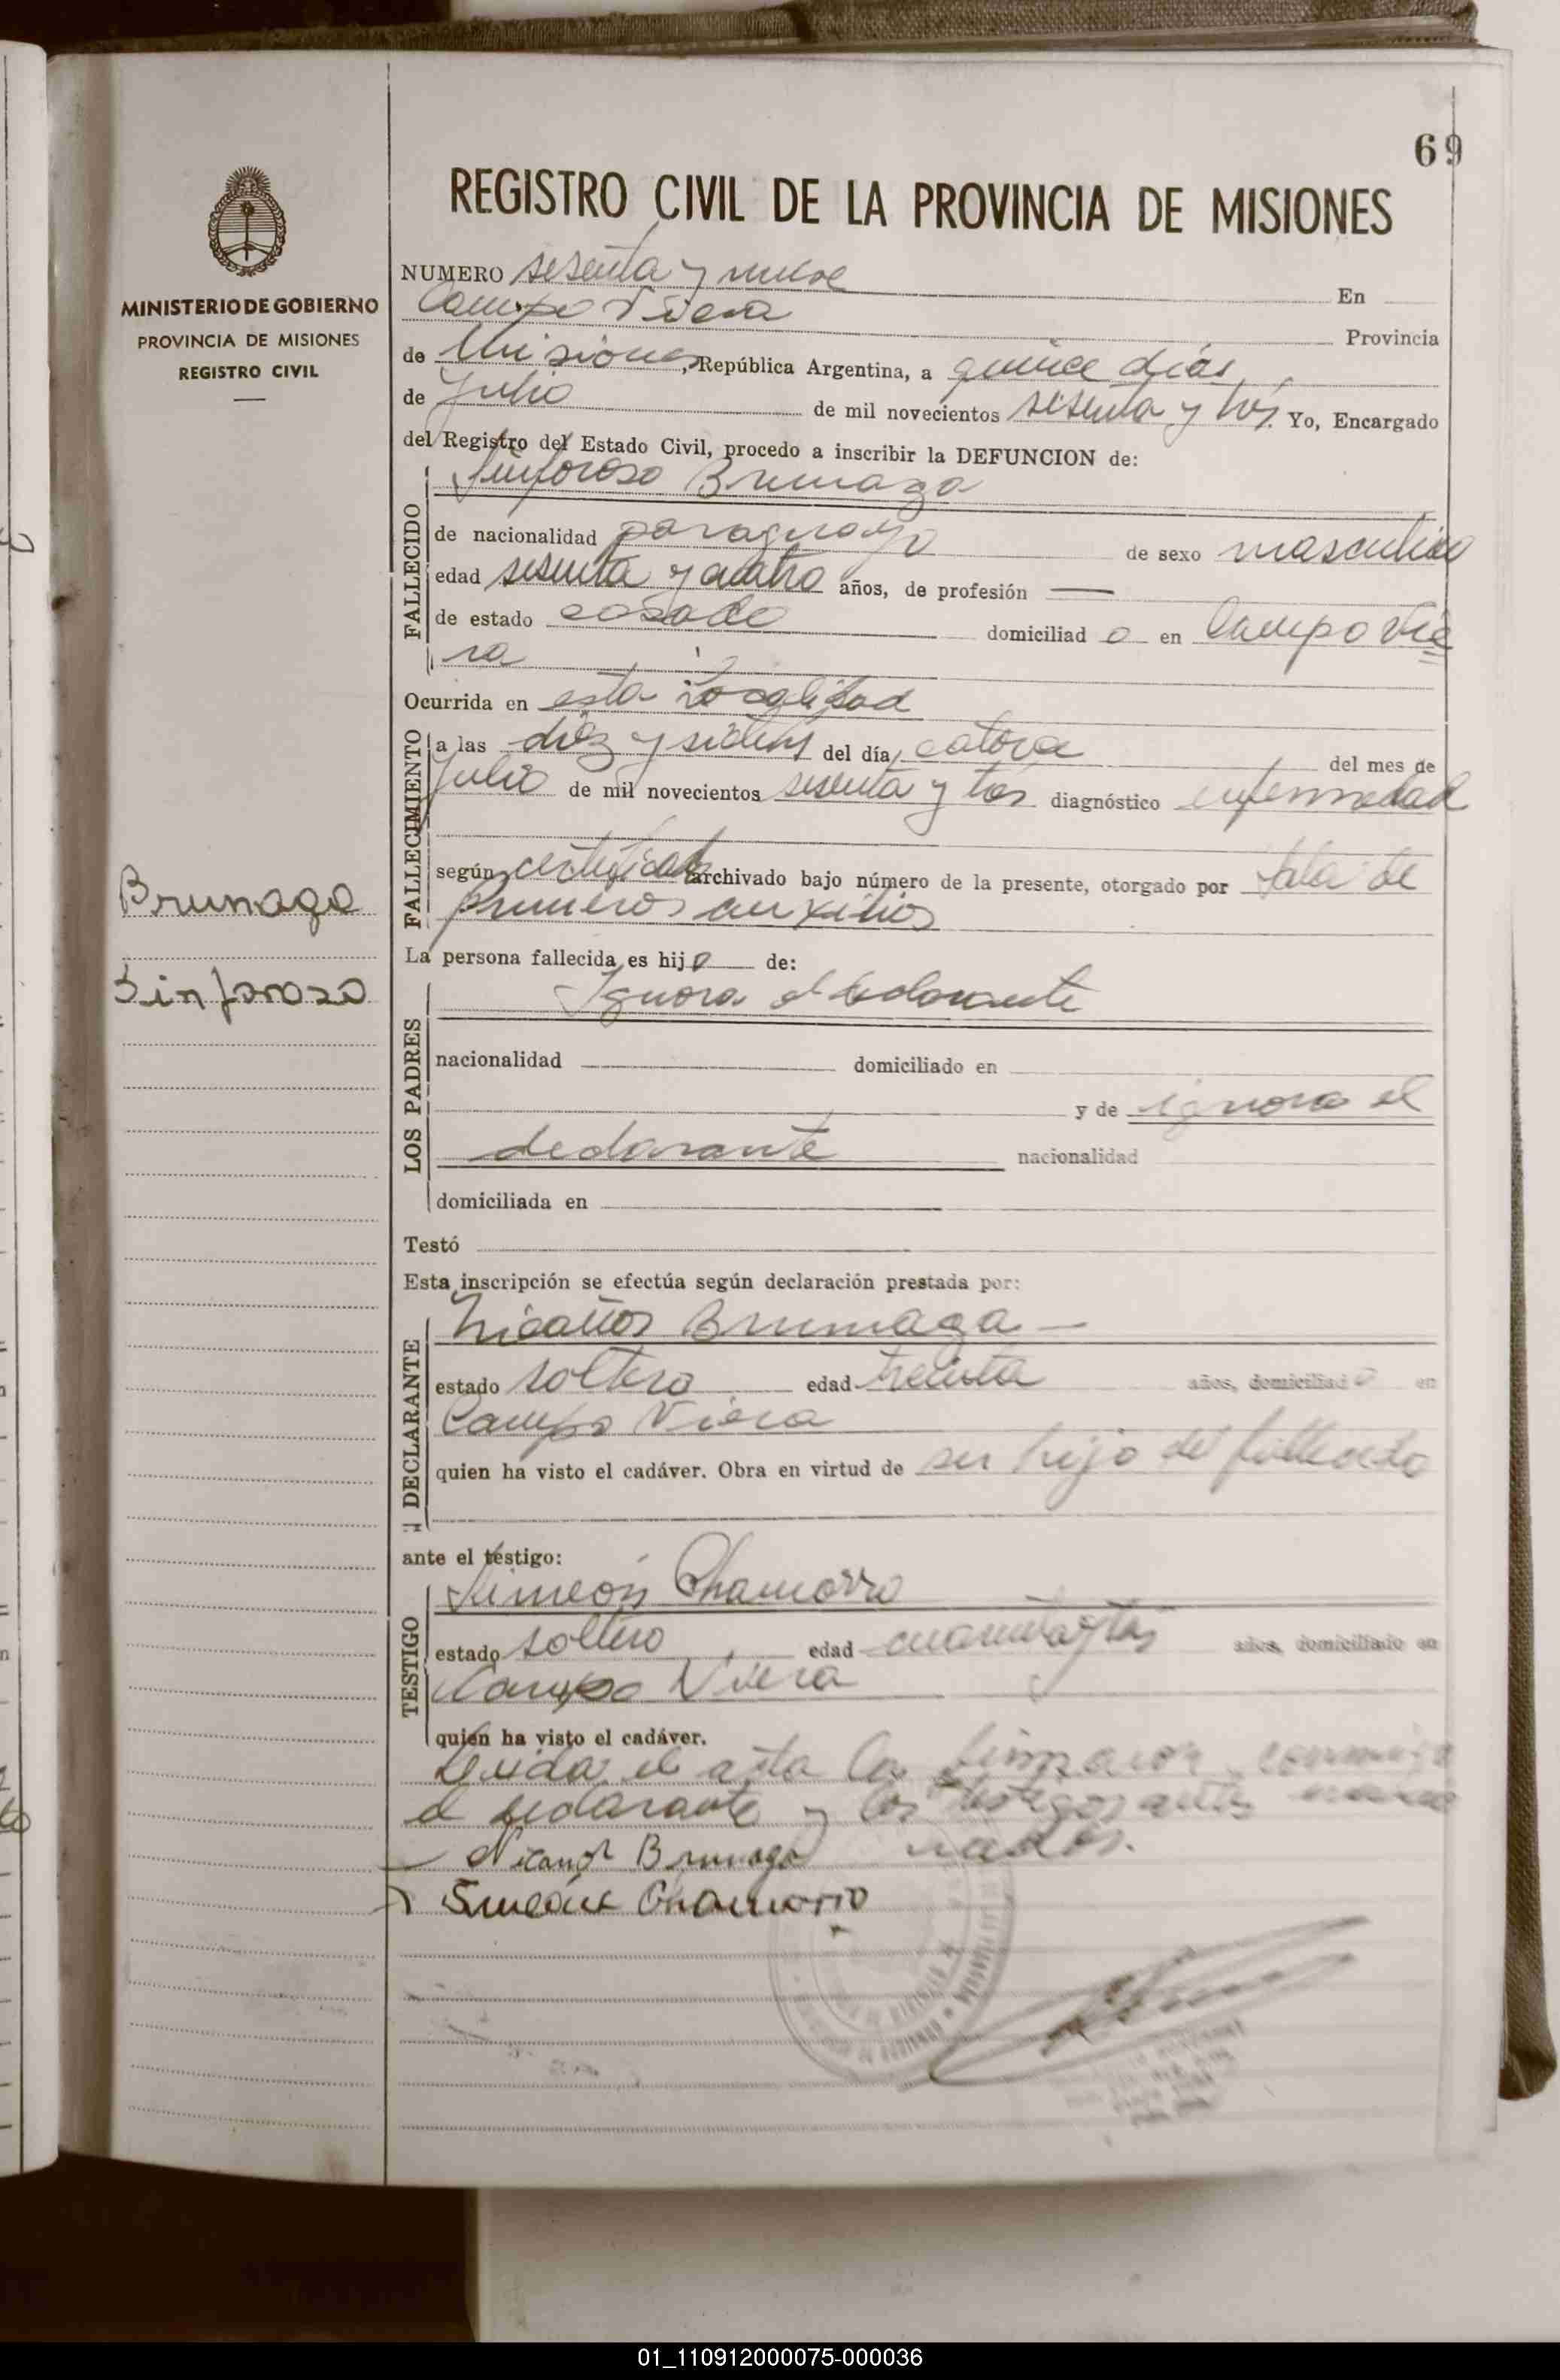 69
REGISTRO CIVIL DE LA PROVINCIA DE MISIONES
MINISTERIO DE GOBIERNO
PROVINCIA DE MISIONES
REGISTRO CIVIL
NUMERO sesenta y nueve En
Campo Viera Provincia
de Misiones, República Argentina, a quince días
de Julio de mil novecientos sesenta y tres. Yo, Encargado
del Registro del Estado Civil, procedo a inscribir la DEFUNCION de:
FALLECIDO
Sinforoso Brumaga
de nacionalidad paraguayo de sexo masculino
edad sesenta y cuatro años, de profesión —
de estado casado domiciliad o en Campo Vie
ra
Ocurrida en esta Localidad
FALLECIMIENTO
a las diez y siete hs del día catorce del mes de
Julio de mil novecientos sesenta y tres diagnóstico enfermedad
según certificado archivado bajo número de la presente, otorgado por Sala de
Primeros auxilios
Brunaga
Sinforozo
La persona fallecida es hij o de:
LOS PADRES
Ignora el declarante
nacionalidad domiciliado en
y de ignora el
declarante nacionalidad
domiciliada en
Testó
Esta inscripción se efectúa según declaración prestada por:
DECLARANTE
Nicanor Brumaga —
estado soltero edad treinta años, domiciliad o en
Campo Viera
quien ha visto el cadáver. Obra en virtud de ser hijo del fallecido
ante el testigo:
TESTIGO
Simeón Chamorro
estado soltero edad cuarenta y tres años, domiciliado en
Campo Viera
quien ha visto el cadáver.
Leida el acta la firmaron conmigo
el declarante y los testigos antes mencio
nados.
Nicanor Brunaga
Simeón Chamorro
01_110912000075-000036